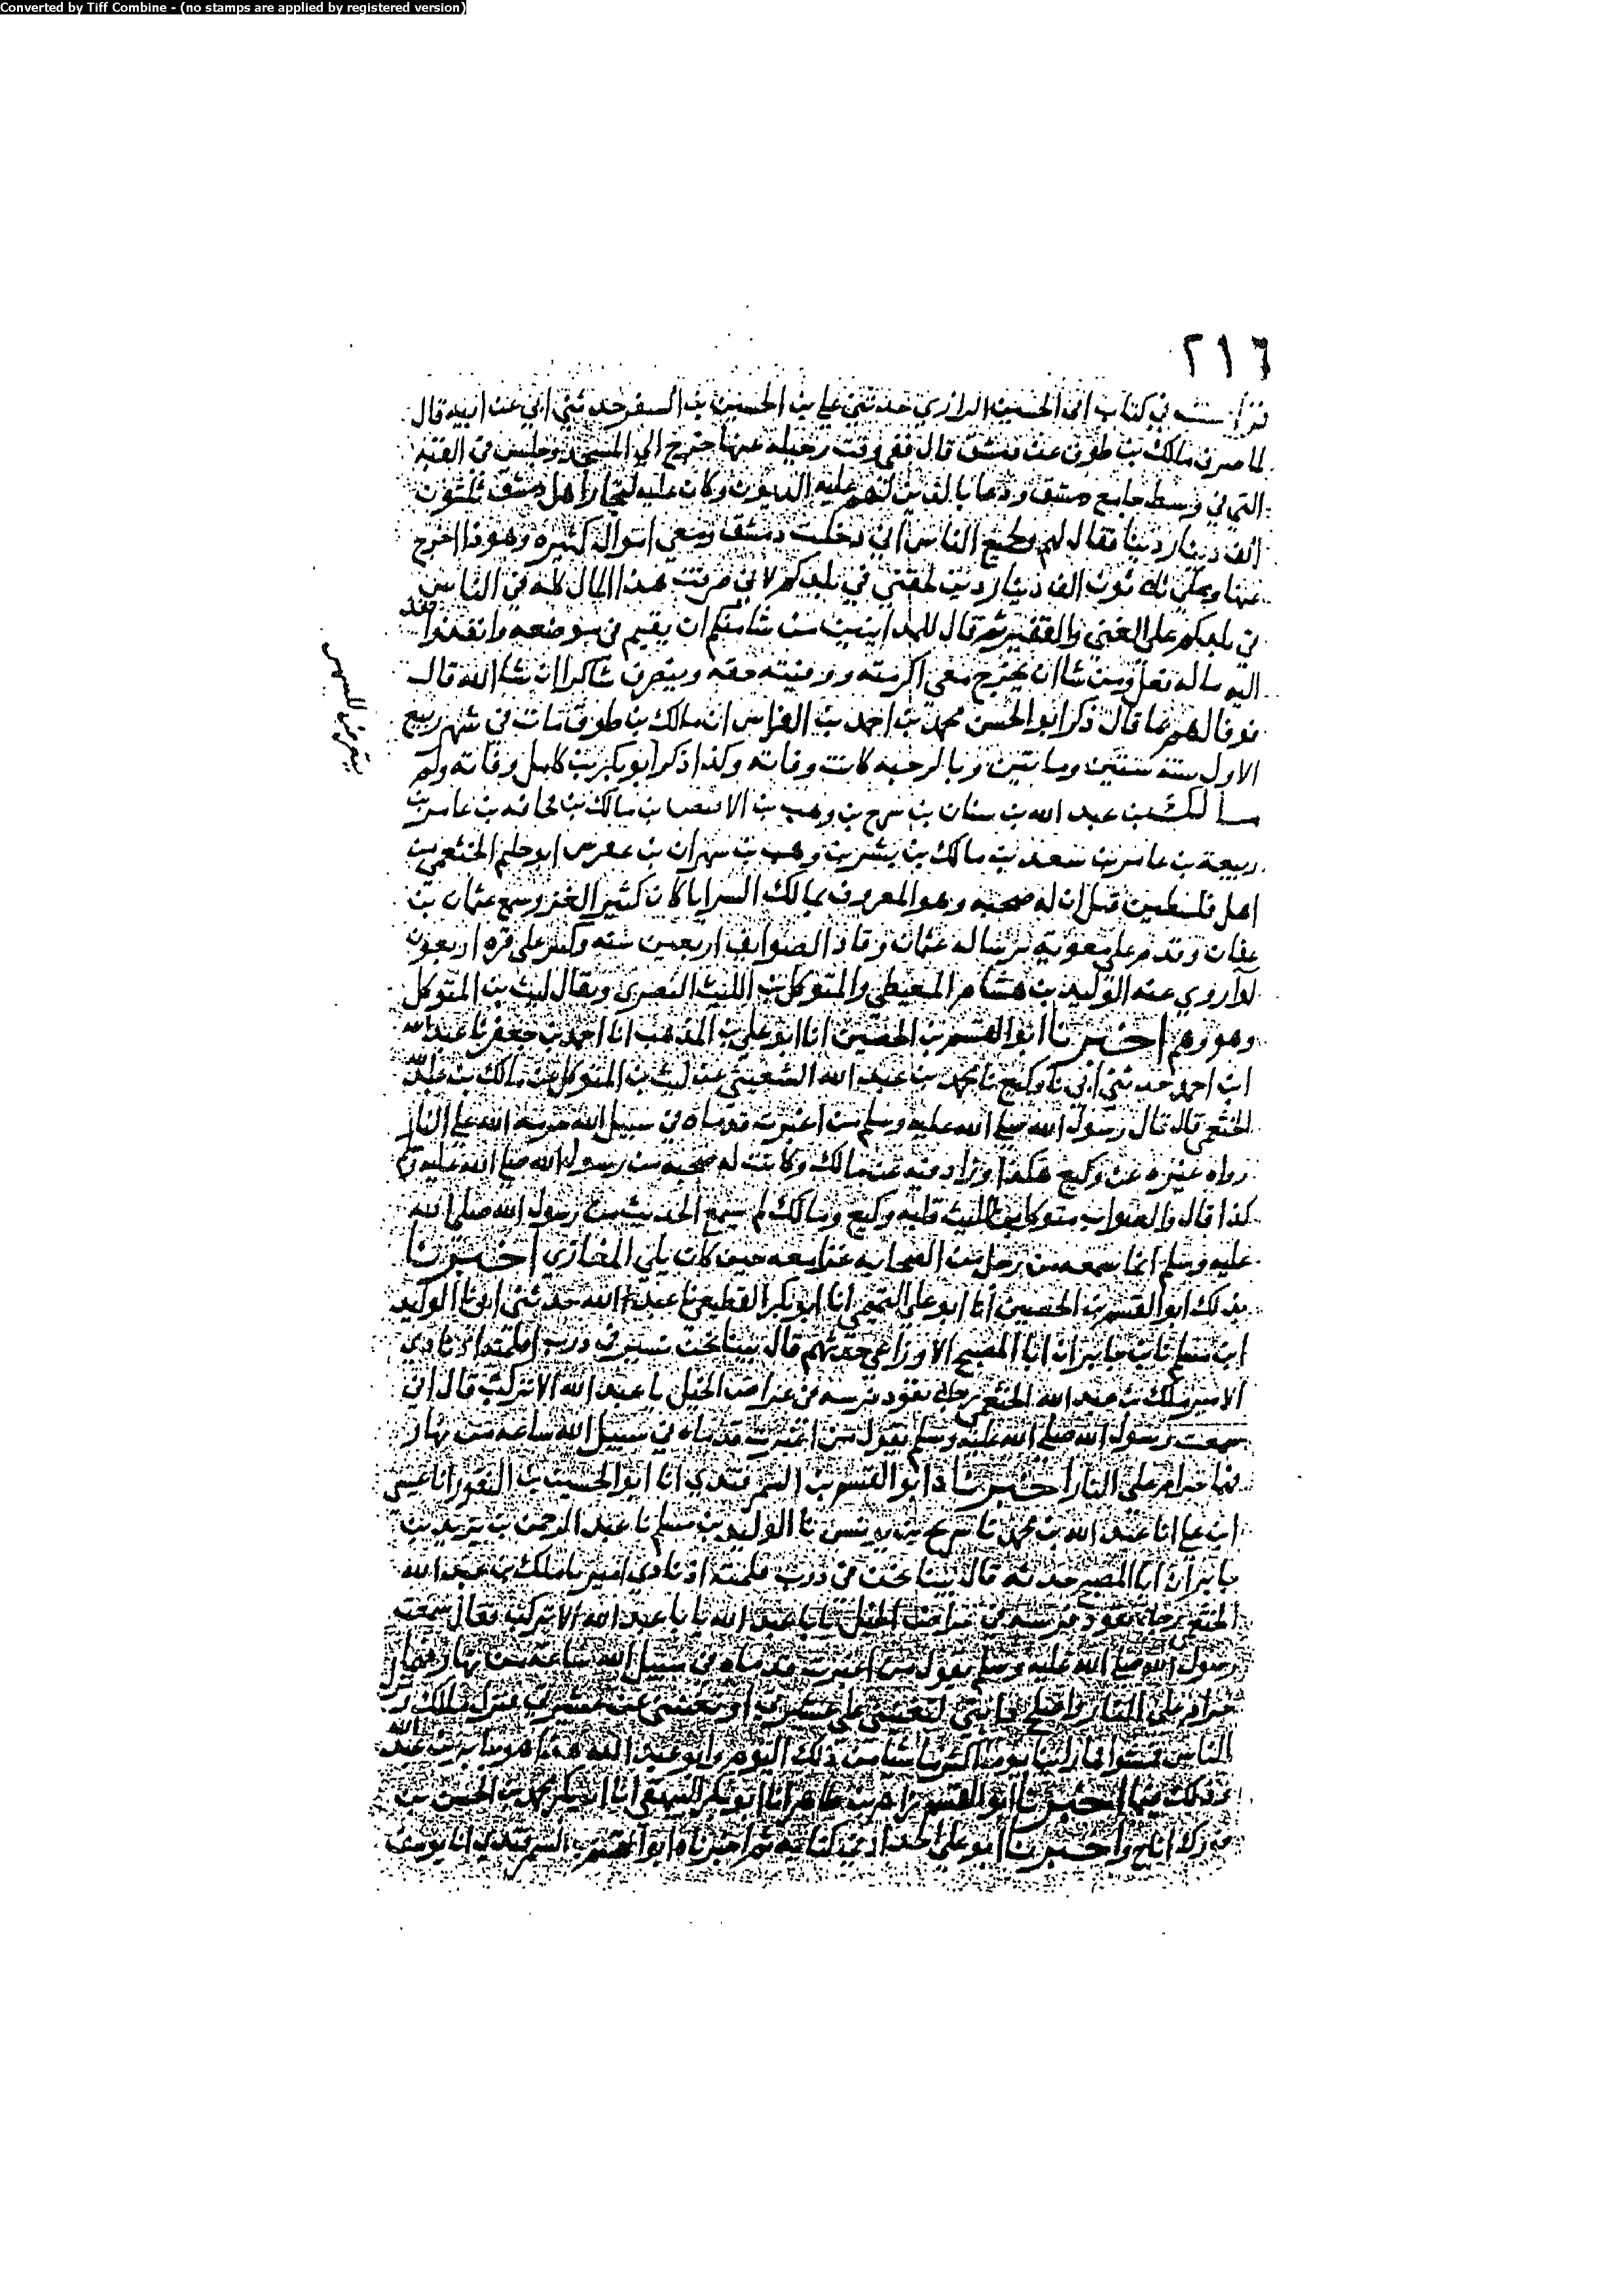 Converted by Tiff Combine - (no stamps are applied by registered version)
٢١٦
قرأت في كتاب ابي الحسين الرازي حدثني علي بن الحسين بن السفر حدثني ابي عن ابيه قال
لما صرف مالك بن طوق عن دمشق قال ففي وقت رحيله عنها خرج الى المسجد وجلس في القبه
التي في وسط جامع دمشق ودعا بالذين لهم عليه الديون وكان عليه لتجار اهل دمشق ثلثون
الف دينار دينا فقال لهم وجميع الناس اني دخلت دمشق ومعي اموال كثيره وهوذا اخرج
عنها وعلي ثلثون الف دينار دين لحقني في بلدكم لاني فرقت هذا المال كله في الناس
في بلدكم على الغني والفقير ثم قال من شا منكم ان يقيم في موضعه وانفذ
اليه ماله فعل ومن شا ان يخرج معي اكرمته ووفيته حقه وينصرف شاكرا ان شا الله قال
فوفا لهم بما قال ذكر ابو الحسن محمد بن احمد بن القواس ان مالك بن طوق مات في شهر ربيع
الاول سنه ستين وماتين وبالرحبه كانت وفاته وكذا ذكر ابو بكر بن كامل وفاته ولم
مالك بن عبد الله بن سنان بن سرح بن وهب بن الاقيصر بن مالك بن قحافه بن عامر بن
ربيعة بن عامر بن سعد بن مالك بن بشر بن وهب بن شهران بن عفرس ابو حكيم الخثعمي من
اهل فلسطين قيل ان له صحبه وهو المعروف بمالك السرايا كان كثير الغزو سمع عثمان بن
عفان وقدم على معويه برساله عثمان وقاد الصوايف اربعين سنه وكسر على قبره اربعون
لوا روي عنه الوليد بن هشام المعيطي والمتوكل بن الليث النصري ويقال ليث بن المتوكل
وهو وهم اخبرنا ابو القسم بن الحصين انا ابو علي بن المذهب انا احمد بن جعفر نا عبد الله
ابن احمد حدثني ابي نا وكيع نا محمد بن عبد الله الشعيثي عن ليث بن المتوكل عن مالك بن عبد الله
الخثعمي قال قال رسول الله صلى الله عليه وسلم من اغبرت قدماه في سبيل الله حرمه الله على النار
رواه غيره عن وكيع هكذا وزاد فيه عن مالك وكانت له صحبه من رسول الله صلى الله عليه وسلم
كذا قال والصواب متوكل بن الليث قلبه وكيع ومالك لم يسمع الحديث من رسول الله صلى الله
عليه وسلم انما سمعه من رجل من الصحابه غزا معه حين كان يلي المغازي اخبرنا
بذلك ابو القسم بن الحصين انا ابو علي التميمي انا ابو بكر القطيعي نا عبد الله حدثني ابي نا الوليد
ابن مسلم نا ابن جابر ان ابا المصبح الاوزاعي حدثهم قال بينا نحن نسير في درب قلمته اذ نادي
الامير ملك بن عبد الله الخثعمي رجل يقود فرسه في عراض الخيل يا عبد الله الا تركب قال اني
سمعت رسول الله صلى الله عليه وسلم يقول من اغبرت قدماه في سبيل الله ساعه من نهار
فهما حرام على النار اخبرنا ابو القسم بن السمرقندي انا ابو الحسين بن النقور انا عيسى
ابن علي انا عبد الله بن محمد نا سريج بن يونس نا الوليد بن مسلم نا عبد الرحمن بن يزيد بن
جابر ان ابا المصبح حدثه قال بينا نحن في درب قلمته اذ نادي اميرنا ملك بن عبد الله
الخثعمي رجل يقود فرسه في عراض الخيل يابا عبد الله يابا عبد الله الا تركب فقال سمعت
رسول الله صلى الله عليه وسلم يقول من اغبرت قدماه في سبيل الله ساعة من نهار فهما
حرام على النار واصلح دابتي لتغنيني عن عشيرتي فنزل ملك ونزل
الناس فمشوا فما راينا يوما اكثر ماشيا من ذلك اليوم وابو عبد الله هذا هو جابر بن عبد الله
اخبرنا ابو القسم زاهر بن طاهر انا ابو بكر البيهقي انا ابو بكر محمد بن الحسن بن
فورك انا ح واخبرنا ابو علي الحداد في كتابه ثم اخبرناه ابو القسم بن السمرقندي انا يوسف